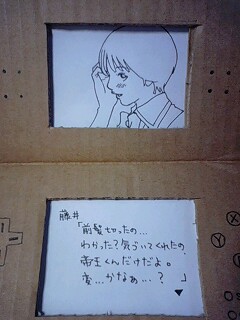 藤井
「前髪切ったの…
わかった?気づいてくれたの
帝王くんだけだよ。
変…かなぁ…?」
▼
X
Y